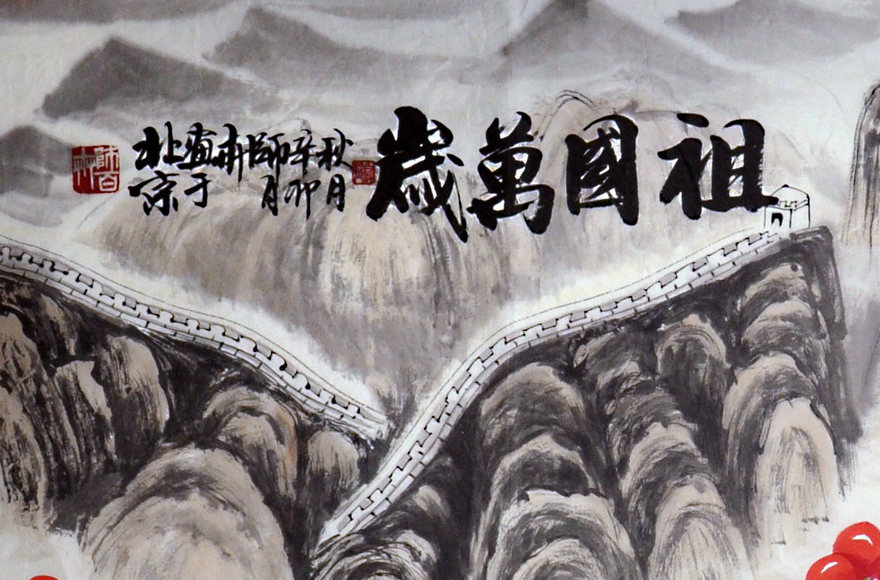 祖國萬歲
秋月
辛卯
師
畫于
北京